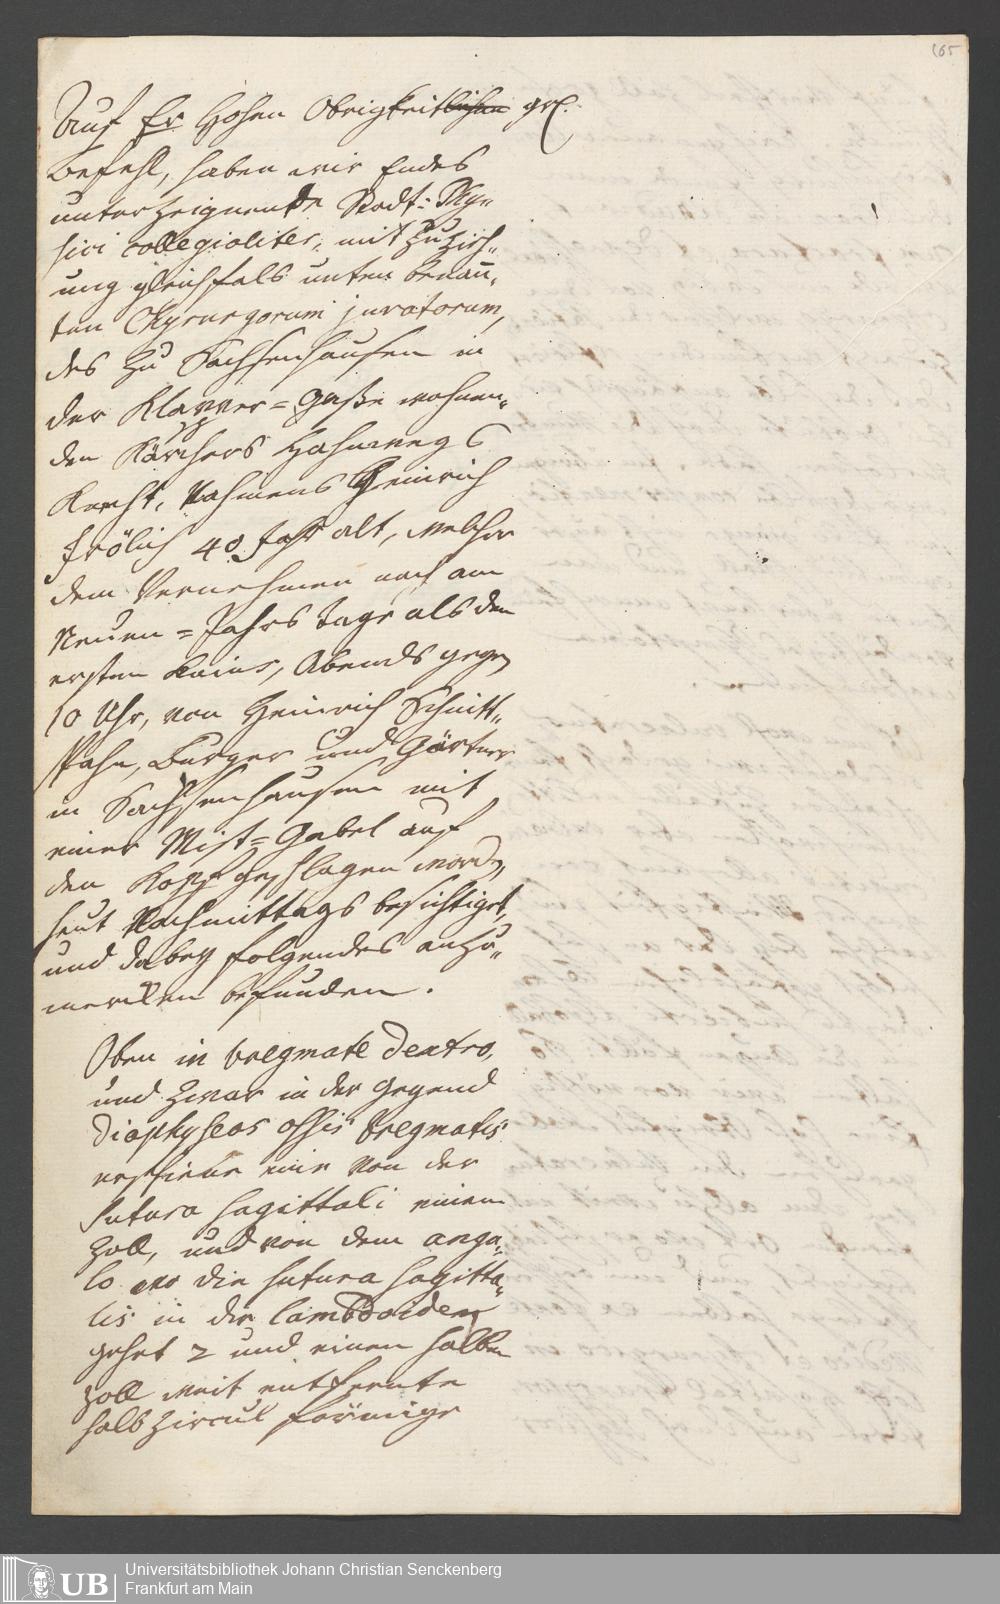 165
Auf Er Hohen Obrigkeitlichen grl.
Befehl, haben wir Endes
unterzeignende Stadt-Phy-
sici collegialiter, mit Zuzieh-
ung gleichfals unten benan-
ten Chyrurgorum juratorum,
des zu Sachsenhausen in
der Klapper=Gaße wohnen-
den Kärchers Hahnwegs
Knecht, Nahmens Heinrich
Frölich 40 Jahr alt, welcher
dem Vernehmen nach am
Neuen=Jahrs Tage als den
ersten hujus, Abends gegen
10 Uhr, von Heinrich Schnitt-
spahn, Burger und Gärtner
in Sachsenhausen mit
einer Mist=Gabel auf
den Kopf geschlagen worden,
heut Nachmittags besichtiget,
und dabey folgendes anzu-
mercken befunden.
Oben in bregmate dextro,
und zwar in der Gegend
Diaphyseos ossis bregmatis
erschiene eine von der
sutura sagittali einem
Zoll, und von dem angu-
lo wo die sutura sagitta-
lis in die lambdoidem
gehet 2 und einen halben
Zoll weit entfernte
halb Zircul förmige
UB
Universitätsbibliothek Johann Christian Senckenberg
Frankfurt am Main